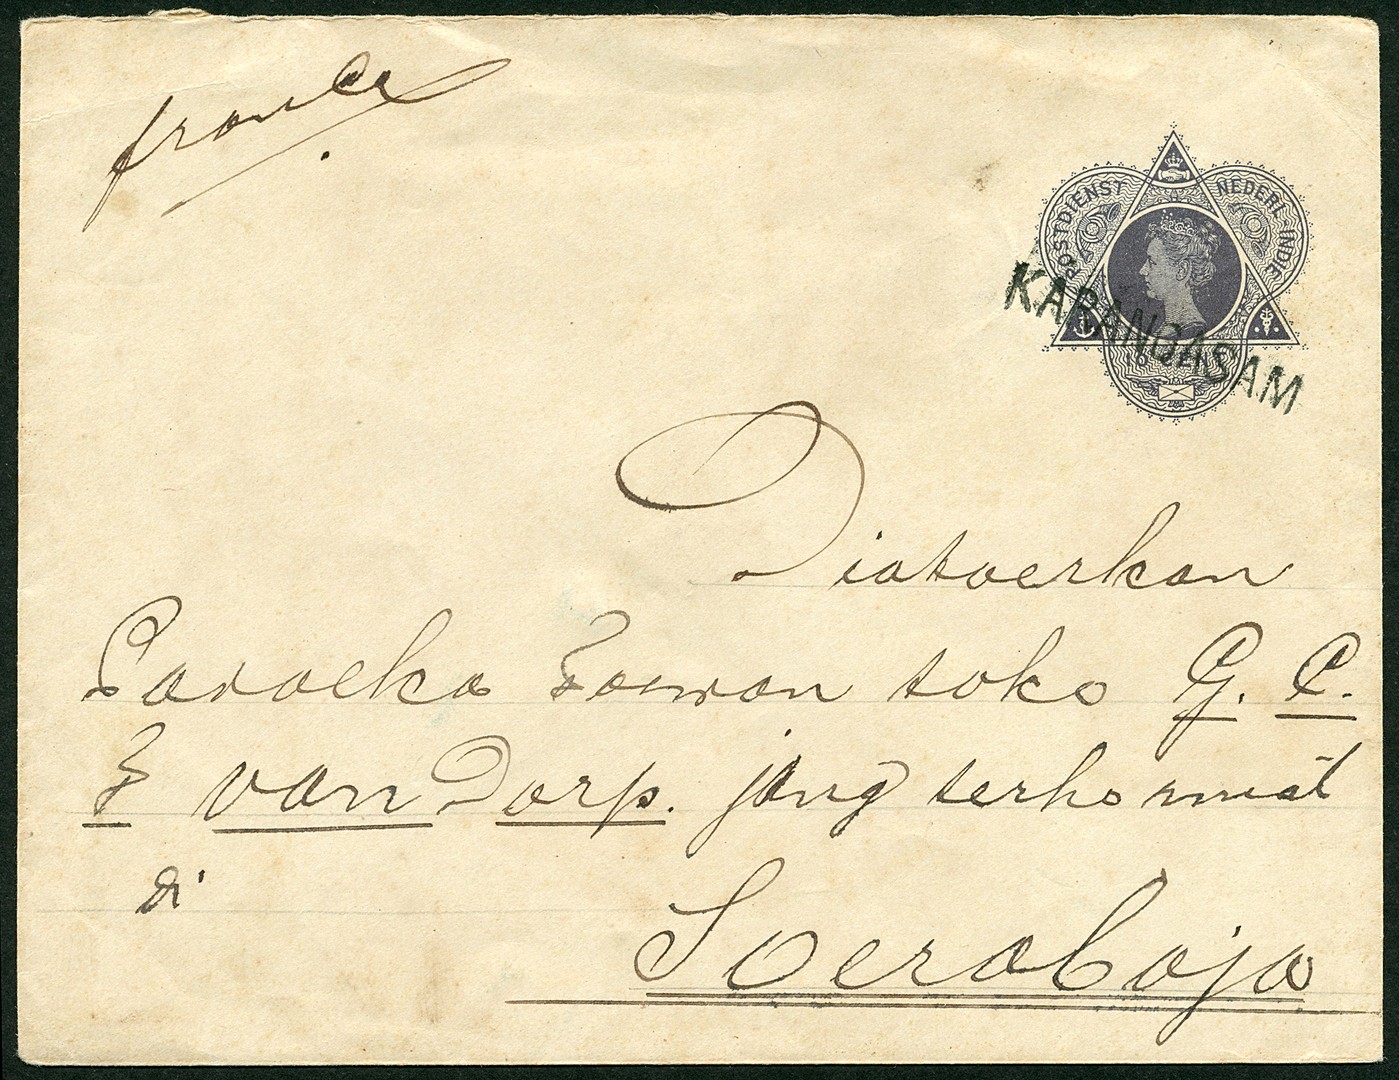 franco
POSTDIENST NEDERL-INDIË
10 CENT
KARANGASAM
Diatoerkan
Padoeka Toewan toko G. C.
T van Dorp. jang terhormat
di
Soerabaja